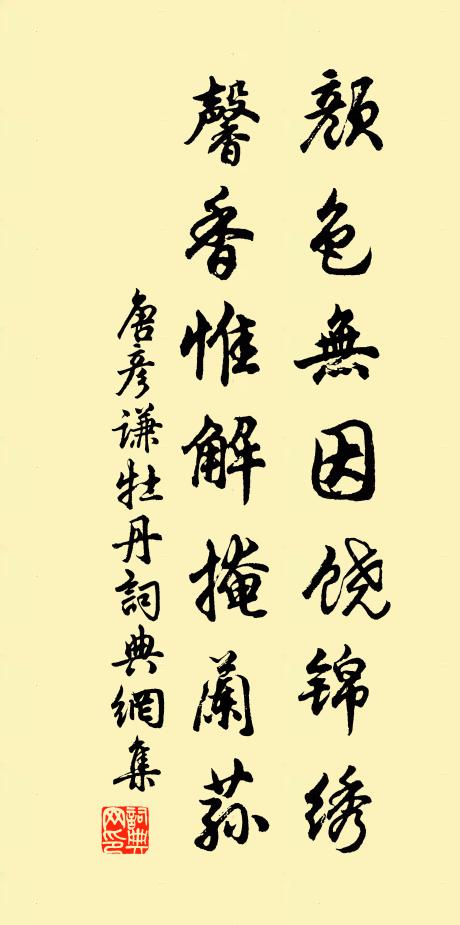 顔色無因饶锦绣
馨香惟解掩蘭荪
唐彦谦牡丹詞典網集
詞典網印